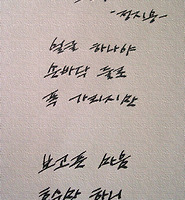 -정지용-
얼골 하나야
손바닥 둘로
폭 가리지만
보고픈 마음
호수만 하니